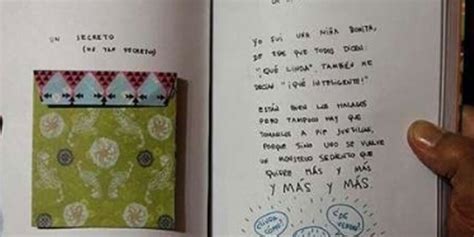 UN SECRETO
(NO TAN SECRETO)
YO FUI UNA NIÑA BONITA,
DE ESAS QUE TODOS DICEN:
"¡QUÉ LINDA!". TAMBIÉN ME
DECÍAN "¡QUÉ INTELIGENTE!"
ESTÁN BIEN LOS HALAGOS
PERO TAMPOCO HAY QUE
TOMARLOS A PIE JUNTILLAS,
PORQUE SINO UNO SE VUELVE
UN MONSTRUO SEDIENTO QUE
QUIERE MÁS Y MÁS
Y MÁS Y MÁS.
¿LINDA
CÓMO?
¿DE
VERDAD?